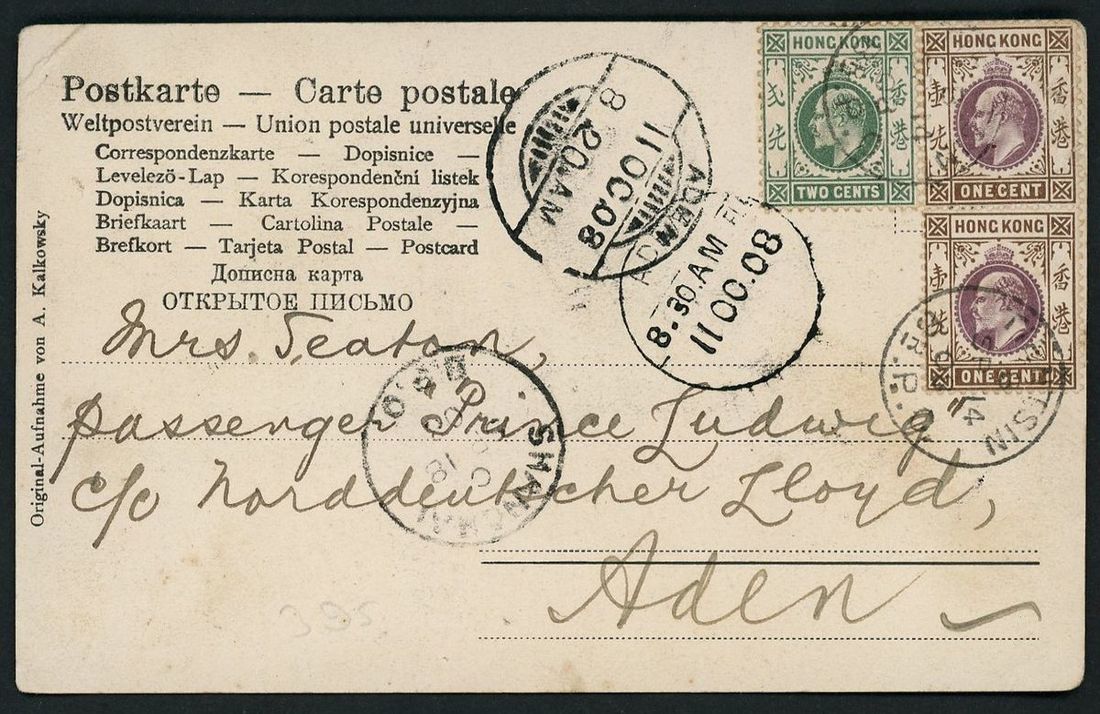 Postkarte — Carte postale
Weltpostverein — Union postale universelle
Correspondenzkarte — Dopisnice —
Levelező-Lap — Korespondenční listek
Dopisnica — Karta Korespondenzyjna
Briefkaart — Cartolina Postale —
Brefkort — Tarjeta Postal — Postcard
Дописна карта
ОТКРЫТОЕ ПИСЬМО
Original-Aufnahme von A. Kalkowsky
HONG KONG
香港
TWO CENTS
HONG KONG
壹
香港
ONE CENT
HONG KONG
壹
香港
ONE CENT
ADEN
8 20 AM
11 OC 08
ADEN
8.30 AM
11 OC.08
B.R.P.O.
SHANGHAI
B.P.O.
Mrs. Seaton,
passenger Prince Ludwig"
c/o Norddeutscher Lloyd,
Aden —
395